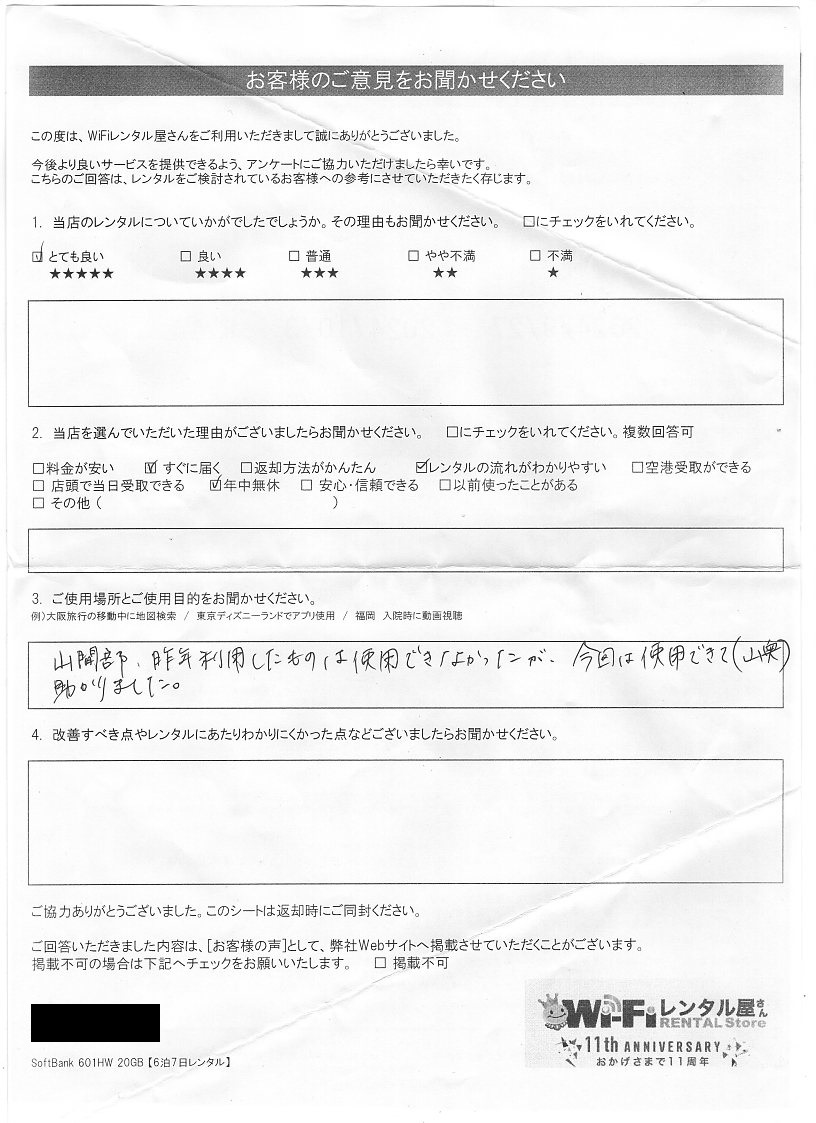 お客様のご意見をお聞かせください
この度は、WiFiレンタル屋さんをご利用いただきまして誠にありがとうございました。
今後より良いサービスを提供できるよう、アンケートにご協力いただけましたら幸いです。
こちらのご回答は、レンタルをご検討されているお客様への参考にさせていただきたく存じます。
1. 当店のレンタルについていかがでしたでしょうか。その理由もお聞かせください。 □にチェックをいれてください。
☑ とても良い □ 良い □ 普通 □ やや不満 □ 不満
★★★★★ ★★★★ ★★★ ★★ ★
2. 当店を選んでいただいた理由がございましたらお聞かせください。 □にチェックをいれてください。複数回答可
□料金が安い ☑ すぐに届く □返却方法がかんたん ☑レンタルの流れがわかりやすい □空港受取ができる
□ 店頭で当日受取できる ☑年中無休 □ 安心・信頼できる □以前使ったことがある
□ その他 ( )
3. ご使用場所とご使用目的をお聞かせください。
例)大阪旅行の移動中に地図検索 / 東京ディズニーランドでアプリ使用 / 福岡 入院時に動画視聴
山間部、昨年利用したものは使用できなかったが、今回は使用できて(山奥)
助かりました。
4. 改善すべき点やレンタルにあたりわかりにくかった点などございましたらお聞かせください。
ご協力ありがとうございました。このシートは返却時にご同封ください。
ご回答いただきました内容は、[お客様の声]として、弊社Webサイトへ掲載させていただくことがございます。
掲載不可の場合は下記へチェックをお願いいたします。 □ 掲載不可
Wi-Fiレンタル屋さん
RENTAL Store
11th ANNIVERSARY
おかげさまで11周年
SoftBank 601HW 20GB【6泊7日レンタル】